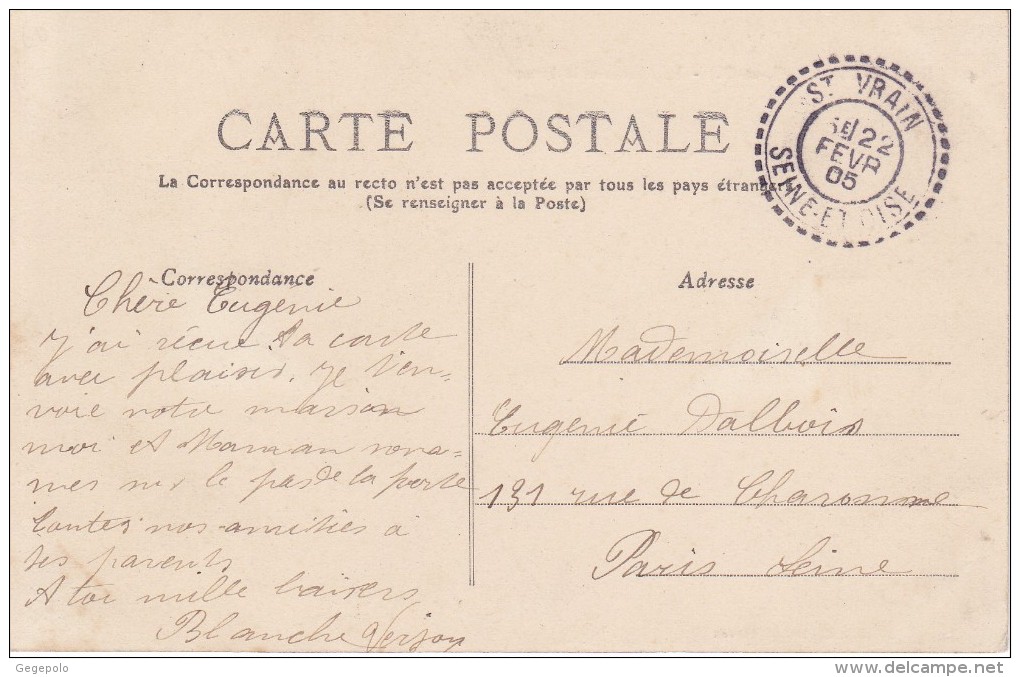 CARTE POSTALE
La Correspondance au recto n'est pas acceptée par tous les pays étrangers
(Se renseigner à la Poste)
ST VRAIN
22
FEVR
05
SEINE-ET-OISE
Correspondance
Chère Eugenie
J'ai récue ta carte
avec plaisir. Je t'en-
voie notre maison
moi et Maman somm-
mes sur le pas de la porte
toutes nos amitiés à
tes parents
A toi mille baisers
Blanche
Adresse
Mademoiselle
Eugenie Dalbois
131 rue de Charonne
Paris Seine
Gegepolo
delcampe.net